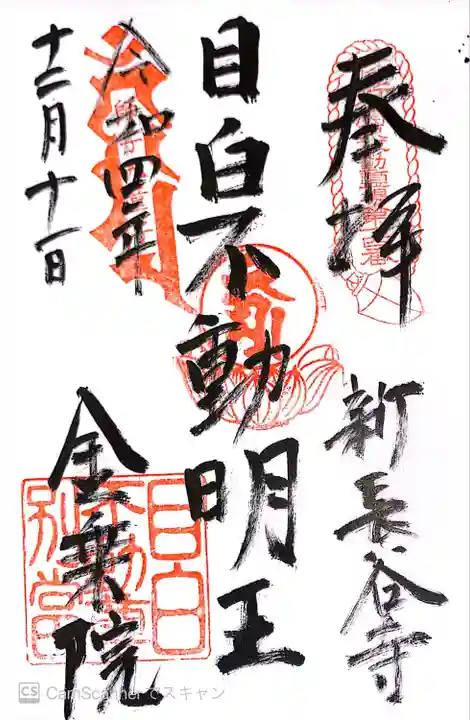 奉拝
新長谷寺
目白不動明王
令和四年
十二月十一日
金乗院
目白
不動堂
別當
CS CamScanner でスキャン